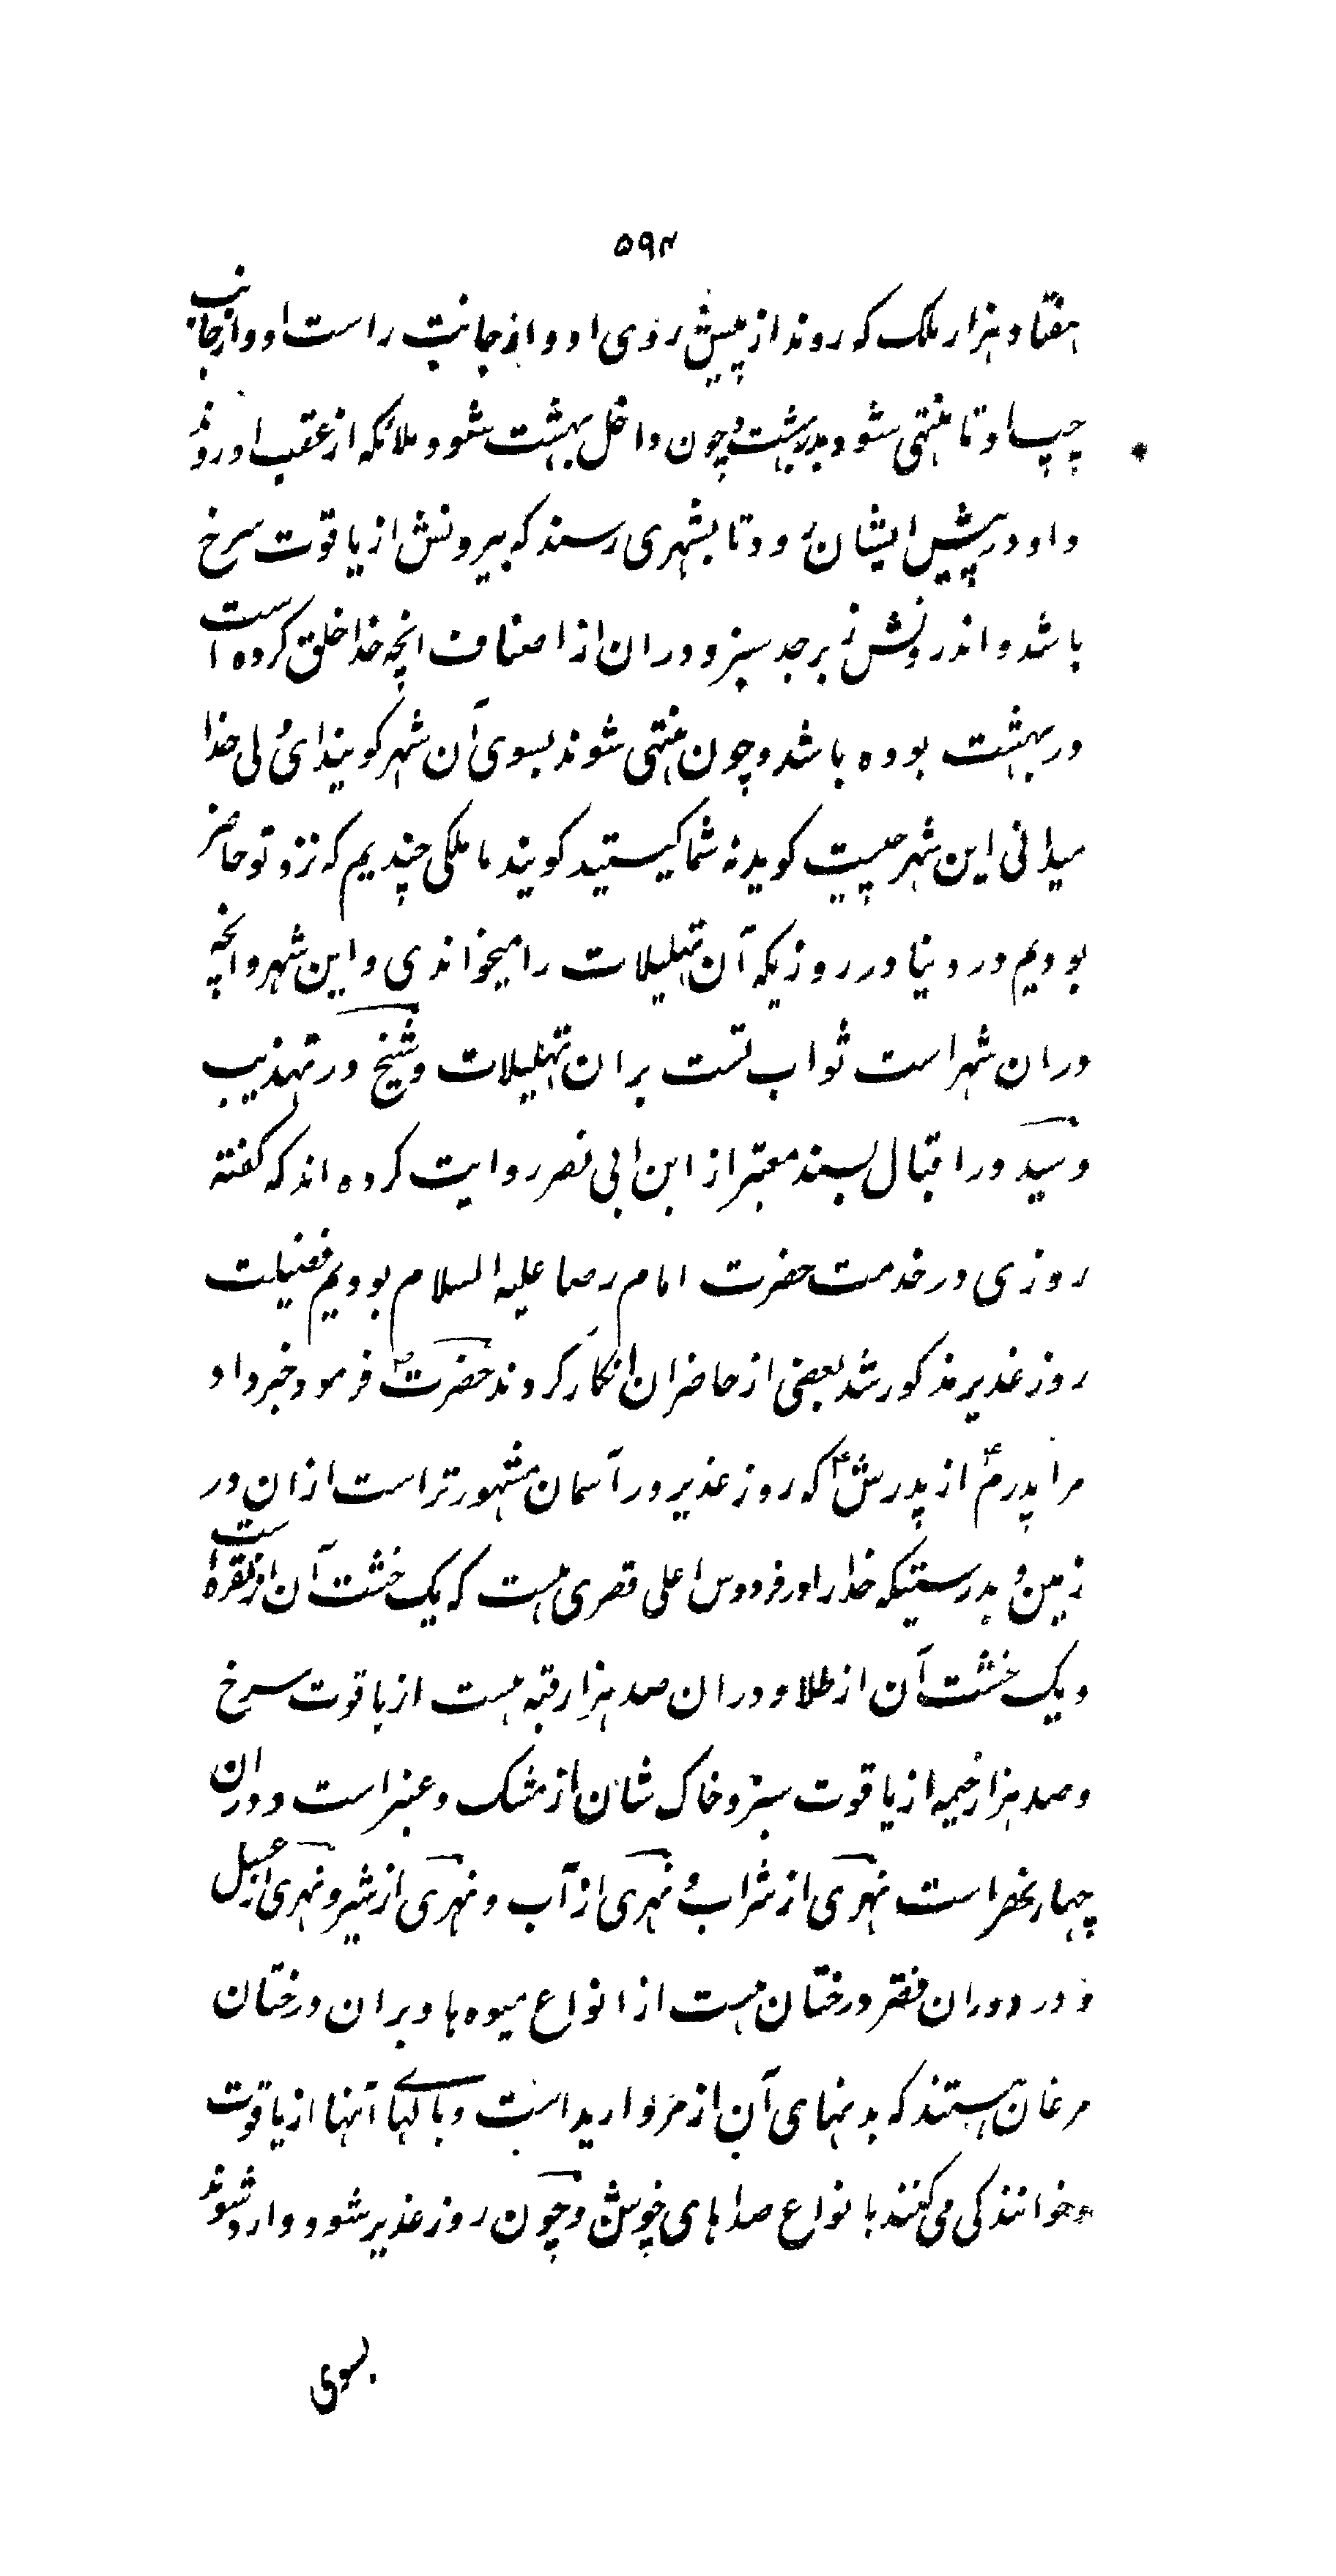 ۵۹۴
هفتاد هزار ملک که روند از پیش روی او و از جانب راست او و از جانب
چپ او تا منتهی شود بدر بهشت و چون داخل بهشت شود ملائکه از عقب او روند
و او در پیش ایشان رود تا بشهری رسند که بیرونش از یاقوت سرخ
باشد و اندرونش زبرجد سبز و دران از اصناف انچه خدا خلق کرده است
در بهشت بوده باشد و چون منتهی شوند بسوی آن شهر کویند ای ولی خدا
میدانی این شهر چیست کوید نه شما کیستید کویند ما ملکی چندیم که نزد تو حاضر
بودیم در دنیا در روزیکه آن تهلیلات را میخواندی و این شهر و انچه
دران شهر است ثواب تست بران تهلیلات و شیخ در تهذیب
و سید در اقبال بسند معتبر از ابن ابی نصر روایت کرده اند که کفته
روزی در خدمت حضرت امام رضا علیه السلام بودیم فضیلت
روز غدیر مذکور شد بعضی از حاضران انکار کردند حضرت ع فرمود خبر داد
مرا پدرم ع از پدرش ع که روز غدیر در آسمان مشهورتر است ازان در
زمین و بدرستیکه خدا را در فردوس اعلی قصری هست که یک خشت آن از نقره است
و یک خشت آن از طلا و دران صد هزار قبه هست از یاقوت سرخ
و صد هزار خیمه از یاقوت سبز و خاک شان از مشک و عنبر است و دران
چهار نهر است نهری از شراب و نهری از آب و نهری از شیر و نهری از عسل
و در دوران قصر درختان هست از انواع میوه ها و بران درختان
مرغان هستند که بدنهای آن از مروارید است و بالهای آنها از یاقوت
و خوانندکی می کنند بانواع صداهای خوش و چون روز غدیر شود وارد شوند
بسوی